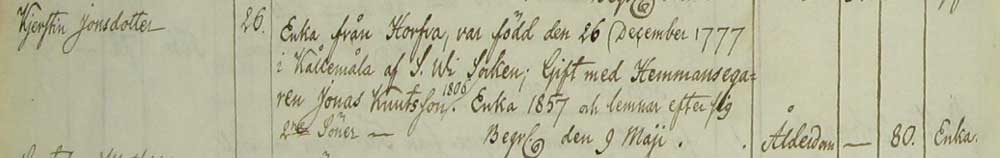 Kjerstin Jonsdotter 26. Enka från Horfva, var född den 26 December 1777
i Kållemåla af S. Wi Socken; Gift med Hemmansega-
ren Jonas Knutsson 1806. Enka 1857 och lemnar efter sig
2ne Söner — Begrofs den 9 Maji. Ålderdom — 80. Enka.